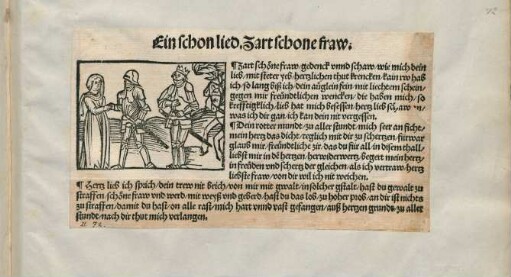 Ein schon lied, Zart schone fraw.
¶ Zart schöne fraw gedenck vnnd schaw wie mich dein
lieb mit steter yeb hertzlichen thut krencken kain rw hab
ich so lang biß ich dein äuglein sein mit liechtem schein
gegen mir freündtlichen wencken die haben mich so
krefftigklich lieb hat mich besessen hertz lieb schaw an
was ich dir gan ich kan dein nit vergessen.
¶ Dein roter munde zu aller stund mich seer an ficht
mein hertz das dicht täglich mit dir zu schertzen fürwar
glaub mir freündtliche zir das du für all in disem thall
liebst mir in dē hertzen herwiderwertz gegen mein hertz
in freüden vnd schertz der gleichen als ich vertraw hertz
liebste fraw von dir will ich nit weichen.
¶ Hertz lieb ich sprich dein trew nit brich von mir mit gwalt in solcher gstalt hast du gewalt zu
straffen schöne fraw vnd werd mit weyß vnd geberd hast du das lob zu hoher prob an dir ist nichts
zu straffen damit du hast on alle rast mich hart vnnd vast gefangen auß hertzen grundt zu aller
stunde nach dir thut mich verlangen.